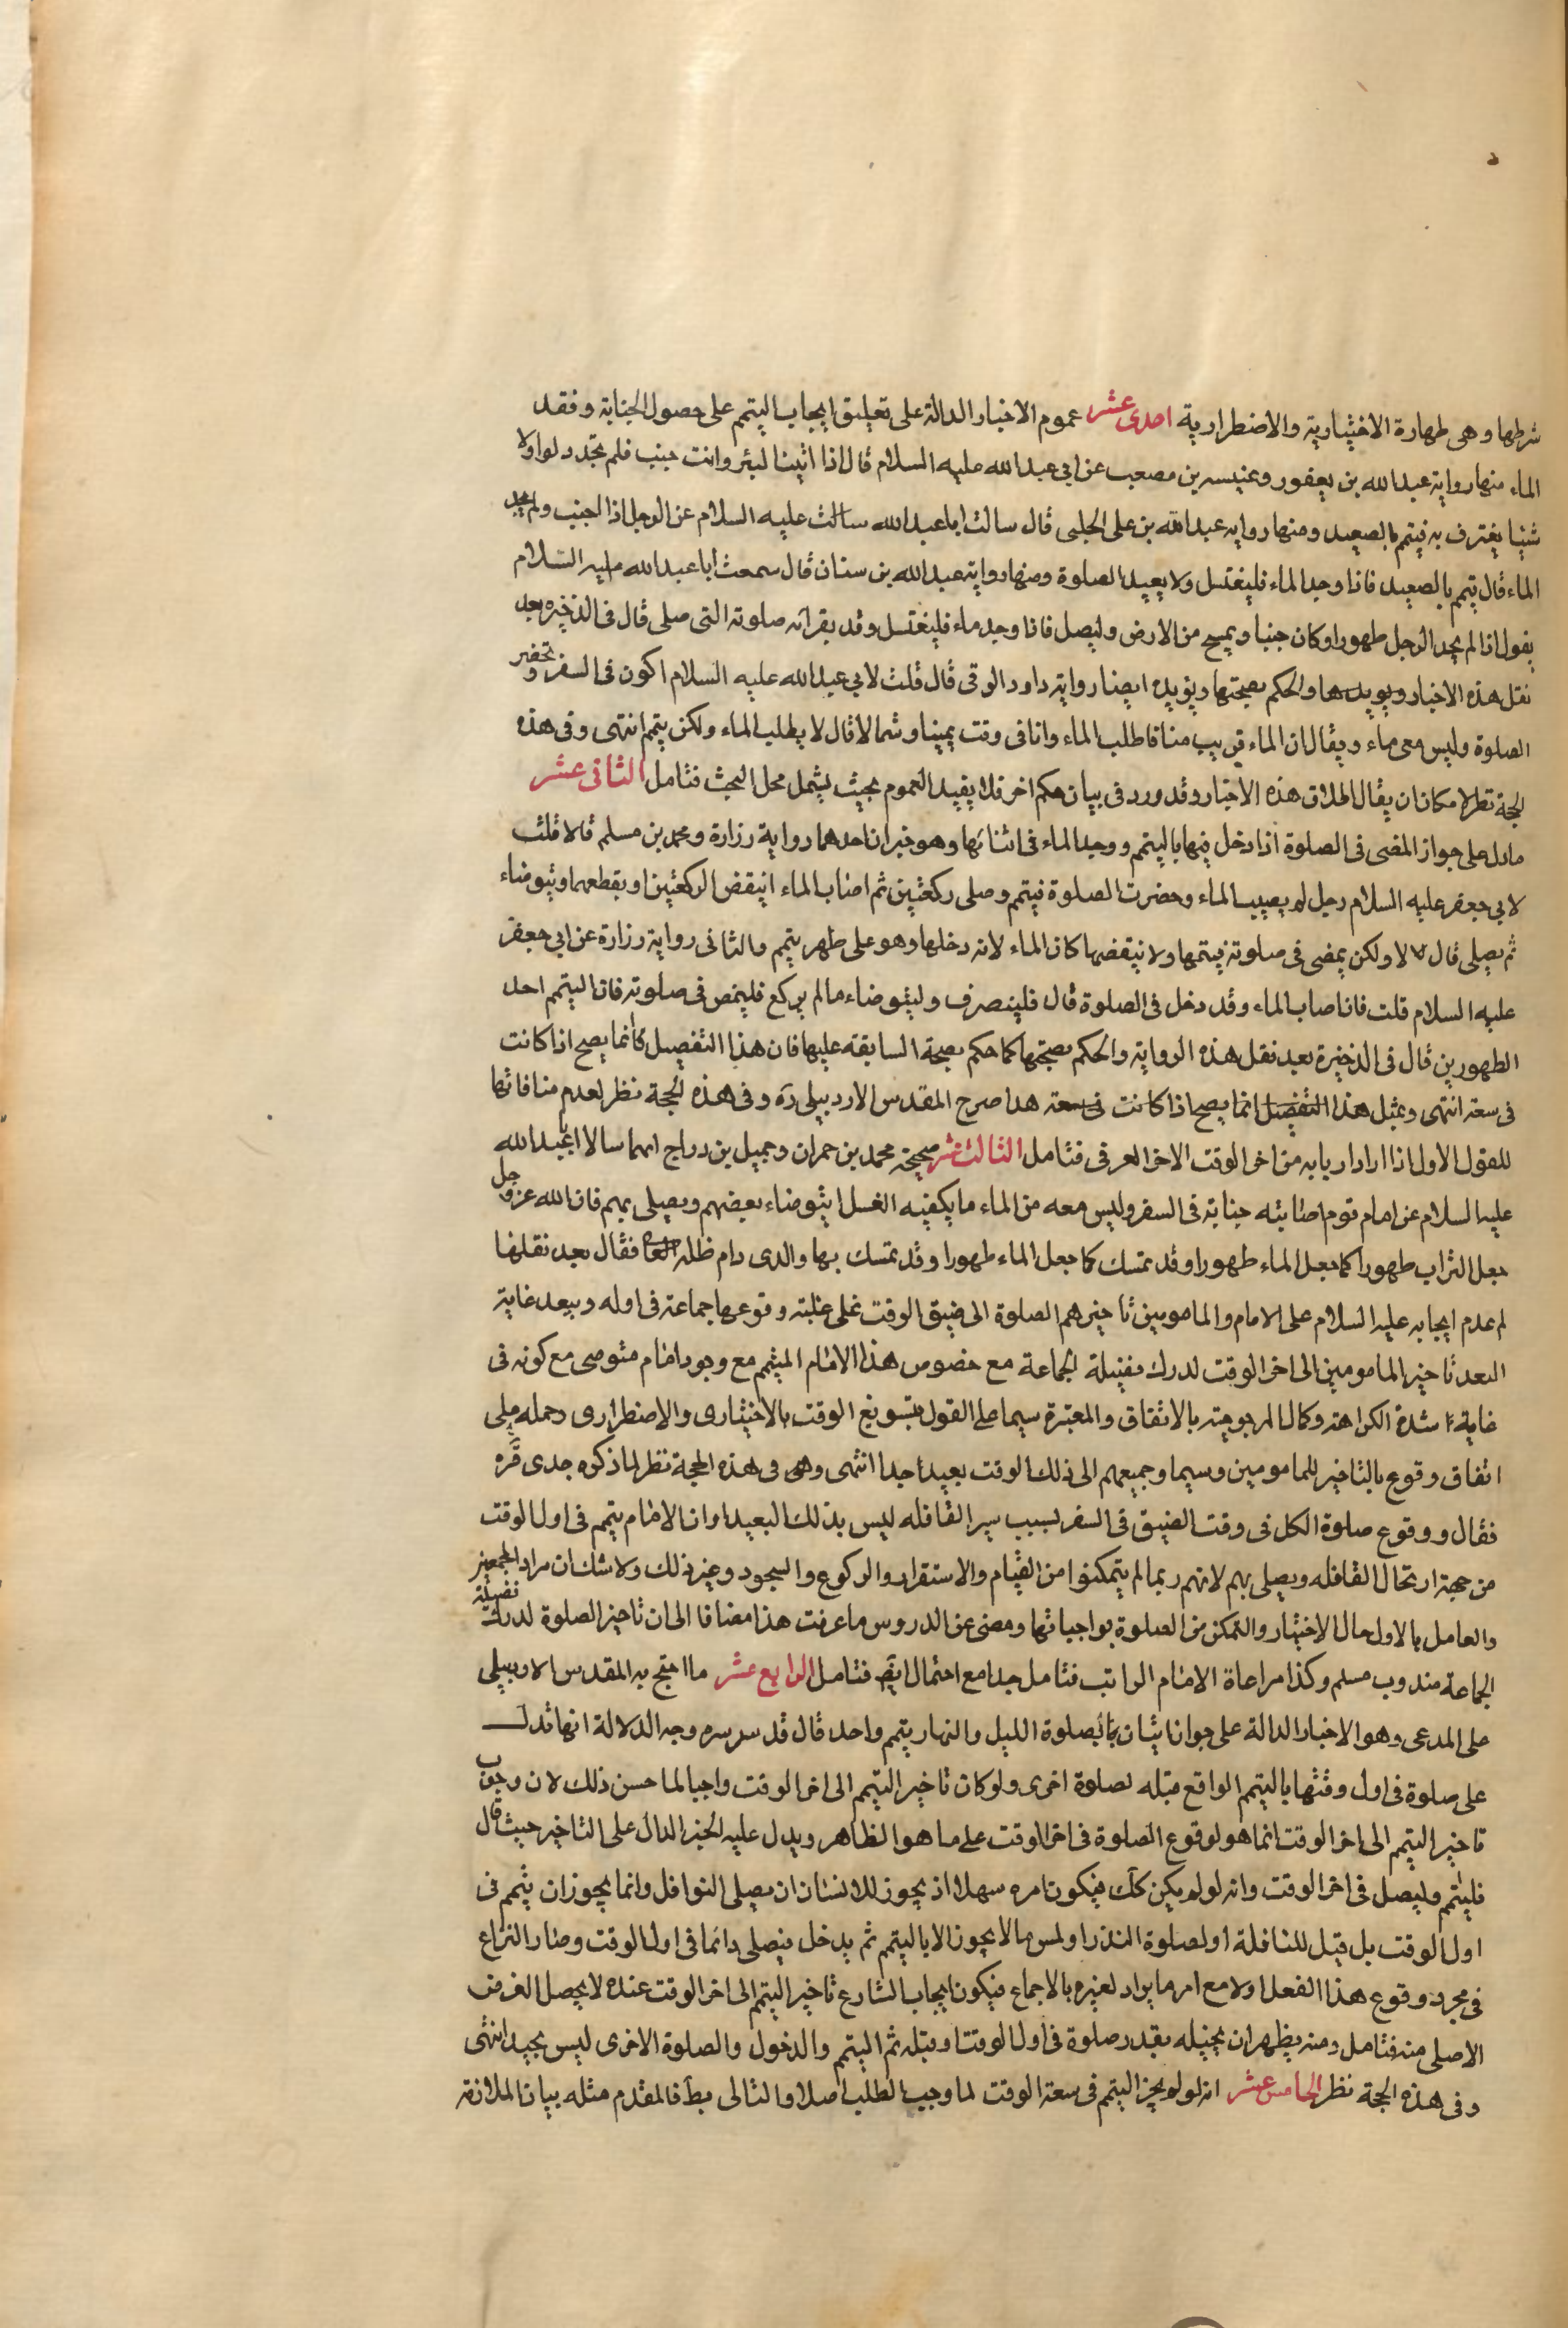 شرطها وهى طهارة الاختيارية والاضطرارية احدى عشر عموم الاخبار الدالة على تعليق ايجاب التيمم على حصول الجنابة وفقد
الماء منها رواية عبد الله بن يعفور وعنبسه بن مصعب عن ابى عبد الله عليه السلام قال اذا اتيت البئر وانت جنب فلم تجد دلوا ولا
شيئا يغترف به فتيمم بالصعيد ومنها روايه عبد الله بن على الحلبى قال سالت ابا عبد الله سالت عليه السلام عن الرجل اذا اجنب ولم يجد
الماء قال تيمم بالصعيد فاذا وجد الماء فليغتسل ولا يعيد الصلوة ومنها رواية عبد الله بن سنان قال سمعت أبا عبد الله عليه السلام
يقول اذا لم يجد الرجل طهورا وكان جنبا ويمسح من الارض وليصل فاذا وجد ماء فليغتسل وقد يقرأته صلوته التى صلى قال فى الذخيره بعد
نقل هذه الاخبار ويويدها والحكم بصحتها ويؤيده ايضا رواية داود الرقى قال قلت لابى عبد الله عليه السلام اكون فى السفر وتحضر
الصلوة وليس معى ماء ويقال ان الماء قريب منا فاطلب الماء وانا فى وقت يمينا وشمالا قال لا يطلب الماء ولكن يتمم انتهى وفى هذه
الحجة نظر لامكان ان يقال اطلاق هذه الاخبار وقد ورد فى بيان حكم اخر فلا يفيد العموم بحيث يشمل محل البحث فتامل الثانى عشر
مادل على جواز المضى فى الصلوة اذا دخل فيها بالتيمم ووجد الماء فى اثنائها وهو خبران احدهما رواية رزارة ومحمد بن مسلم قالا قلت
لابى جعفر عليه السلام رجل لم يصيب الماء وحضرت الصلوة فتيمم وصلى ركعتين ثم اصاب الماء اينقض الركعتين او يقطعهما ويتوضاء
ثم يصلى قال لا لا ولكن يمضى فى صلوته فيتمها ولا ينقضها كان الماء لانه دخلها وهو على طهر يتمم والثانى رواية رزارة عن ابى جعفر
عليه السلام قلت فاذا صاب الماء وقد دخل فى الصلوة قال فلينصرف وليتوضاء مالم يركع فليمض فى صلوته فان التيمم احد
الطهورين قال فى الذخيرة بعد نقل هذه الرواية والحكم بصحتها كما حكم بصحة السابقه عليها فان هذا التفصيل كانما يصح اذا كانت
فى سعته انتهى وبمثل هذا التفصيل انما يصح اذا كانت فى سعته هذا صرح المقدس الاردبيلى ره وفى هذه الحجة نظر لعدم منافاتها
للقول الاول اذا اراد اربابه من اخر الوقت الاخر العرفى فتامل الثالث عشر صحيحة محمد بن حمران وجميل بن دراج انهما سالا ابا عبد الله
عليه السلام عن امام قوم اصابته جنابة فى السفر وليس معه من الماء ما يكفيه الغسل ايتوضاء بعضهم ويصلى بهم فان الله عز وجل
جعل التراب طهورا كما جعل الماء طهورا وقد تمسك كما جعل الماء طهورا وقد تمسك بها والدى دام ظله العا فقال بعد نقلها
لم عدم ايجابه عليه السلام على الامام والمامومين تاخيرهم الصلوة الى ضيق الوقت غلى غلبته وقوعها جماعة فى اوله ويبعد غاية
البعد تاخير المامومين الى اخر الوقت لدرك فضيلة الجماعة مع خصوص هذا الامام المتيمم مع وجود امام متوضى مع كونه فى
غاية شدة الكراهة وكمال المرجوحيته بالاتفاق والمعتبرة سيما على القول بتسويغ الوقت بالاختيارى والاضطرارى وحمله على
اتفاق وقوع بالتاخير للمامومين وسيما وجميعهم الى ذلك الوقت بعيدا جدا انتهى وهى فى هذه الحجة نظر لما ذكره جدى قره
فقال ووقوع صلوة الكل فى وقت الضيق فى السفر بسبب سير القافله ليس بذلك البعيد اوان الامام يتمم فى اول الوقت
من جهة ارتحال القافله ويصلى بهم لانهم ربما لم يتمكنوا من القيام والاستقرار والركوع والسجود وغير ذلك ولا شك ان مراد المجمعين
والعامل بالاول حال الاختيار والتمكن من الصلوة بواجباتها ومضى عن الدروس ما عرفت هذا مضافا الى ان تاخير الصلوة لدرك فضيلة
الجماعة مندوب مسلم وكذا مراعاة الامام الراتب فتامل جدا مع احتمال ايض فتامل الرابع عشر ما احتج به المقدس الاردبيلى
على المدعى وهو الاخبار الدالة على جواز اتيان بصلوة الليل والنهار يتمم واحد قال قد سر سره وجه الدلالة انها تدل
على صلوة فى اول وقتها بالتيمم الواقع قبله لصلوة اخرى ولو كان تاخير التيمم الى اخر الوقت واجبا لما حسن ذلك لان وجوب
تاخير التيمم الى اخر الوقت انما هو لوقوع الصلوة فى اخر الوقت على ما هو الظاهر ويدل عليه الخبر الدال على التاخير حيث قال
فليتمم وليصل فى اخر الوقت وانه لو لم يكن كك فيكون امره سهلا اذ يجوز للانسان ان يصلى النوافل وانما يجوز ان يتمم فى
اول الوقت بل قبل للنافلة او لصلوة النذر او لمس مالا يجوز الا بالتيمم ثم يدخل فيصلى دائما فى اول الوقت وصار النزاع
فى مجرد وقوع هذا الفعل اولا مع امر ما يراد لغيره بالاجماع فيكون ايجاب الشارع تاخير التيمم الى اخر الوقت عنده لا يحصل الغرض
الاصلى منه فتامل ومنه يظهر ان تخيله بقدر صلوة فى اول الوقت او قبله ثم التيمم والدخول والصلوة الاخرى ليس بجيد انتهى
وفى هذه الحجة نظر الخامس عشر انه لو لم يجز التيمم فى سعة الوقت لما وجب الطلب اصلا والتالى بط فالمقدم مثله بيان الملازمة